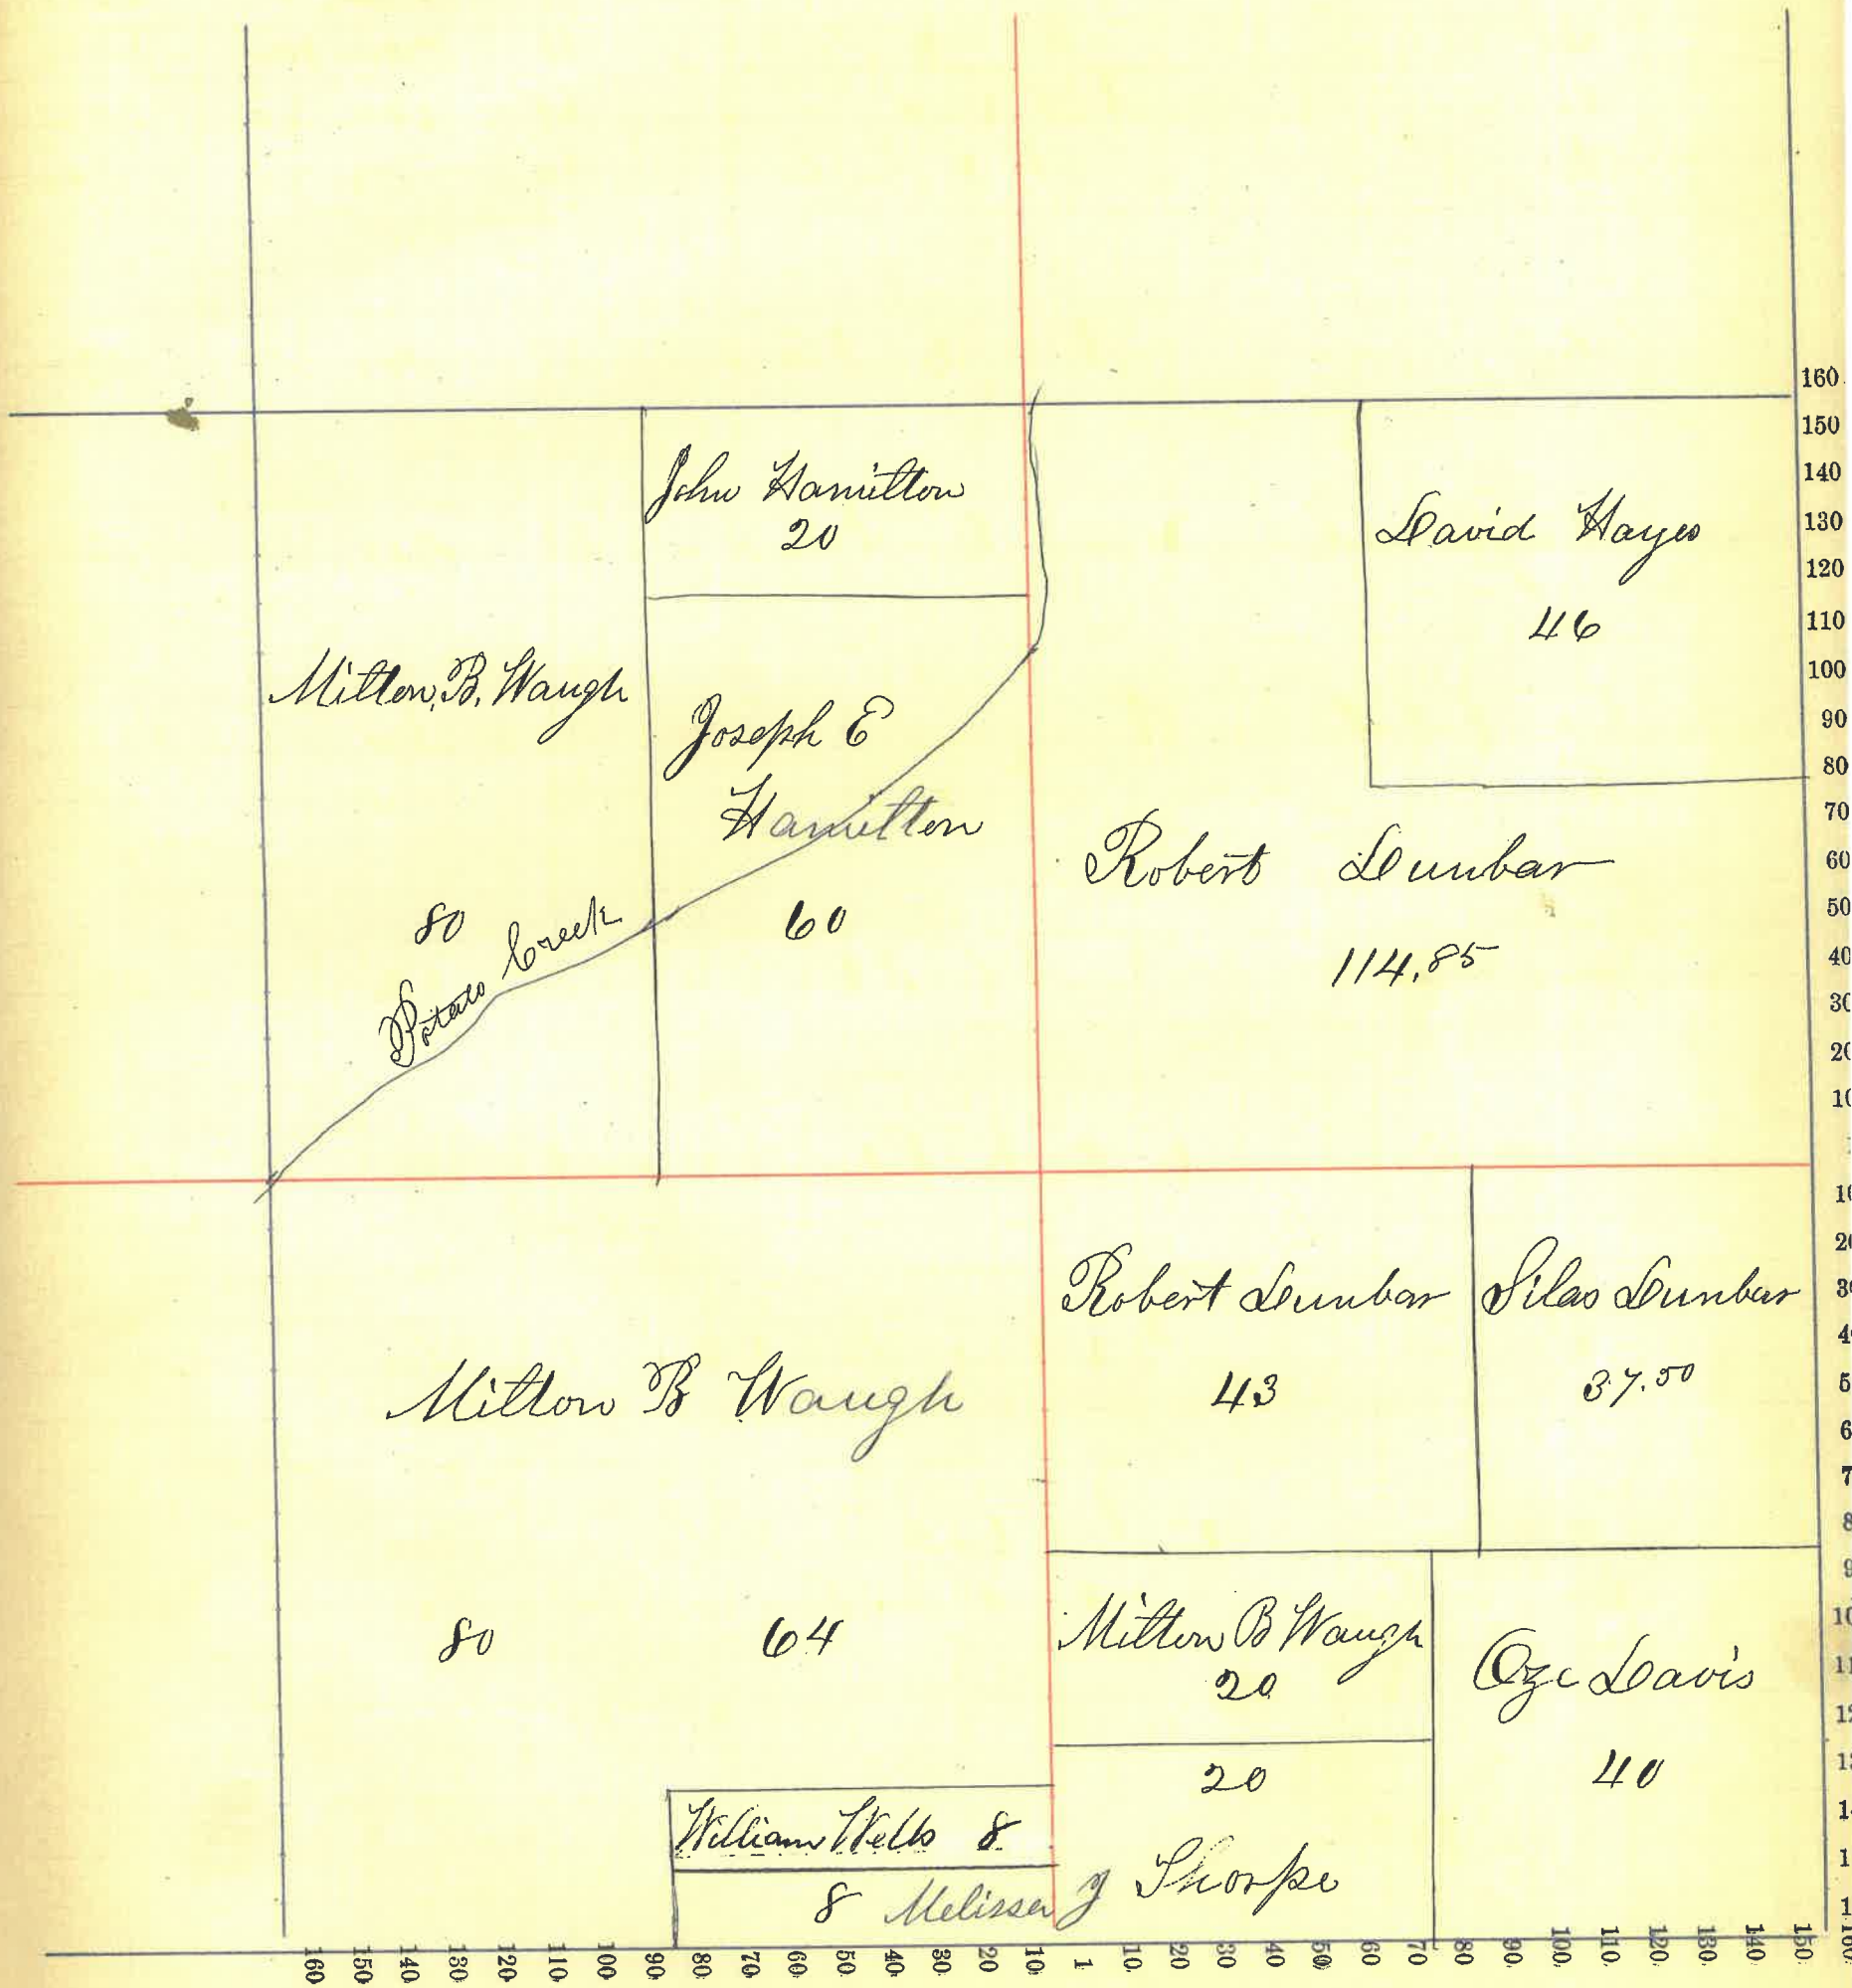 John Hamilton
20
David Hayes
46
Milton, B. Waugh
80
Joseph E
Hamilton
60
Potato Creek
Robert Dunbar
114.85
Milton B Waugh
80 64
Robert Dunbar
43
Silas Dunbar
37.50
Milton B Waugh
20
Oze Davis
40
20
William Wells 8
8 Melissa J Thorpe
160
150
140
130
120
110
100
90
80
70
60
50
40
30
20
10
160 150 140 130 120 110 100 90 80 70 60 50 40 30 20 10 1 10 20 30 40 50 60 70 80 90 100 110 120 130 140 150